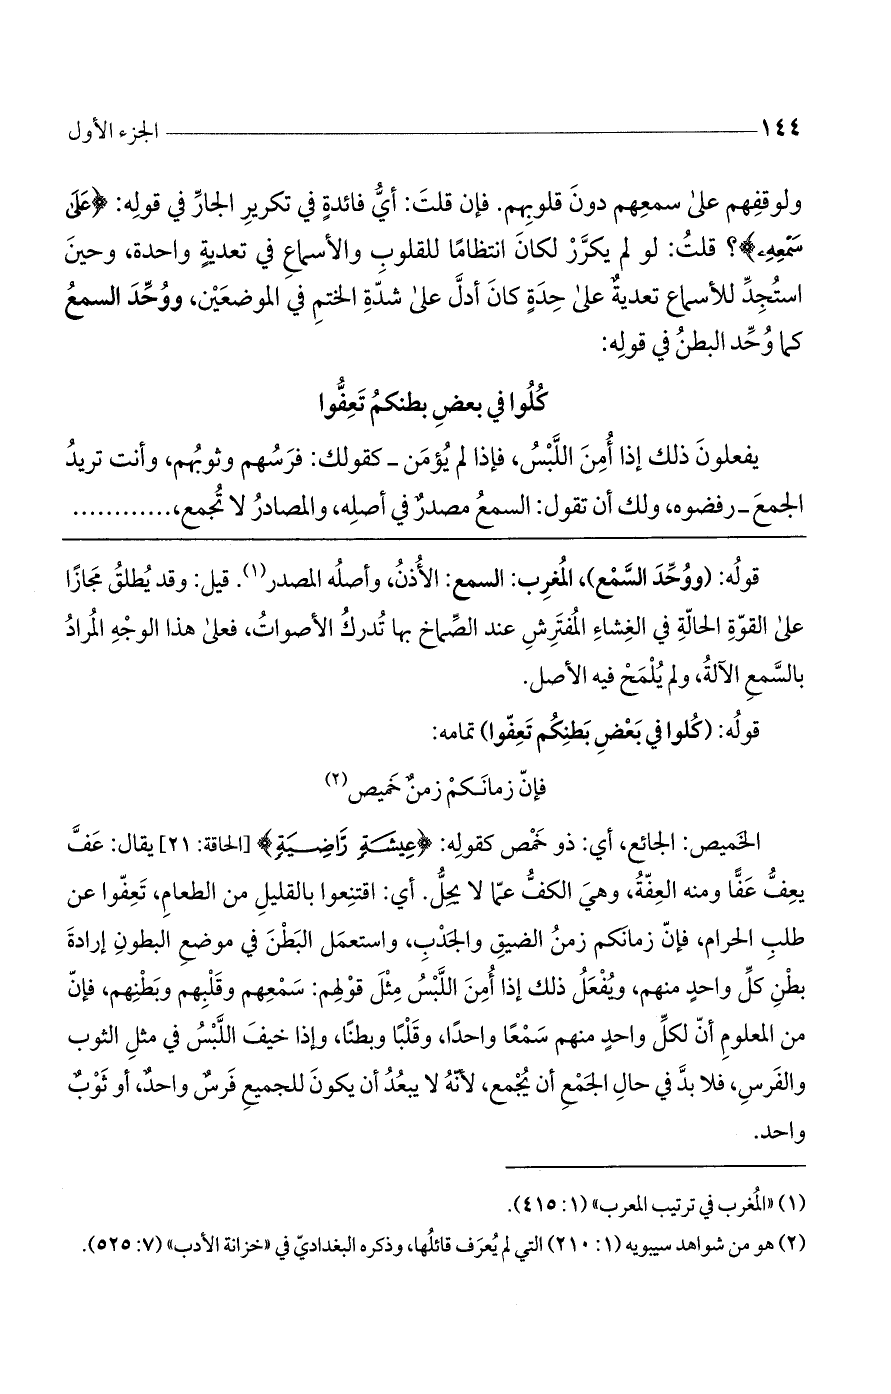 ١٤٤ الجزء الأول
ولوقفِهم علىٰ سمعِهم دونَ قلوبِهم. فإن قلتَ: أيُّ فائدةٍ في تكريرِ الجارِّ في قولِه: ﴿عَلَىٰ
سَمْعِهِۦ﴾؟ قلتُ: لو لم يكرَّرْ لكانَ انتظامًا للقلوبِ والأسماعِ في تعديةٍ واحدة، وحينَ
استُجِدِّ للأسماع تعديةٌ علىٰ حِدَةٍ كانَ أدلَّ علىٰ شدّةِ الختمِ في الموضعَيْن، ووُحِّدَ السمعُ
كما وُحِّد البطنُ في قولِه:
كُلُوا في بعضِ بطنكمُ تَعِفُّوا
يفعلونَ ذلك إذا أُمِنَ اللَّبْسُ، فإذا لم يُؤمَن ـ كقولك: فرَسُهم وثوبُهم، وأنت تريدُ
الجمعَ ـ رفضوه، ولك أن تقول: السمعُ مصدرٌ في أصلِه، والمصادرُ لا تُجمع،............
قولُه: (ووُحِّدَ السَّمْع)، المُغرِب: السمع: الأُذنُ، وأصلُه المصدر(١). قيل: وقد يُطلقُ مَجازًا
علىٰ القوّةِ الحالّةِ في الغِشاءِ المُفتَرِشِ عند الصِّماخ بها تُدركُ الأصواتُ، فعلىٰ هذا الوجْهِ المُرادُ
بالسَّمعِ الآلةُ، ولم يُلْمَحْ فيه الأصل.
قولُه: (كُلوا في بَعْضِ بَطنِكُم تَعِفّوا) تمامه:
فإنّ زمانَـكمْ زمنٌ خَميص(٢)
الخَميص: الجائع، أي: ذو خَمْص كقولِه: ﴿عِيشَةٍ رَّاضِيَةٍ﴾ [الحاقة: ٢١] يقال: عَفَّ
يعِفُّ عَفًّا ومنه العِفّةُ، وهيَ الكفُّ عمّا لا يحِلُّ. أي: اقتنِعوا بالقليلِ من الطعامِ، تَعِفّوا عن
طلبِ الحرام، فإنّ زمانَكم زمنُ الضيقِ والجَدْبِ، واستعمَل البَطْنَ في موضعِ البطونِ إرادةَ
بطْنِ كلِّ واحدٍ منهم، ويُفْعَلُ ذلك إذا أُمِنَ اللَّبْسُ مِثْلَ قوْلهِم: سَمْعِهم وقَلْبِهم وبَطْنِهم، فإنّ
من المعلومِ أنّ لكلِّ واحدٍ منهم سَمْعًا واحدًا، وقَلْبًا وبطنًا، وإذا خيفَ اللَّبْسُ في مثلِ الثوب
والفَرسِ، فلا بدَّ في حالِ الجَمْعِ أن يُجْمع، لأنّهُ لا يبعُدُ أن يكونَ للجميعِ فَرسٌ واحدٌ، أو ثَوْبٌ
واحد.
(١) «المُغرب في ترتيب المعرب» (١: ٤١٥).
(٢) هو من شواهد سيبويه (١: ٢١٠) التي لم يُعرَف قائلُها، وذكره البغداديّ في «خزانة الأدب» (٧: ٥٢٥).